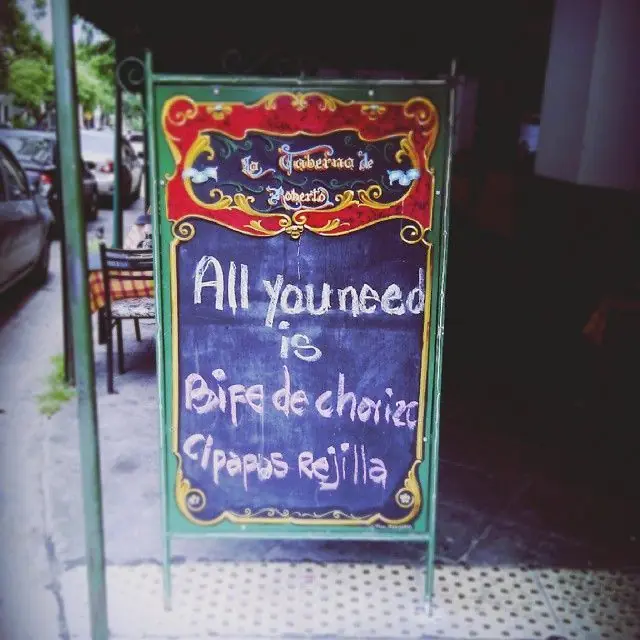 La Taberna de
Roberto
All you need
is
Bife de chorizo
c/papas Rejilla